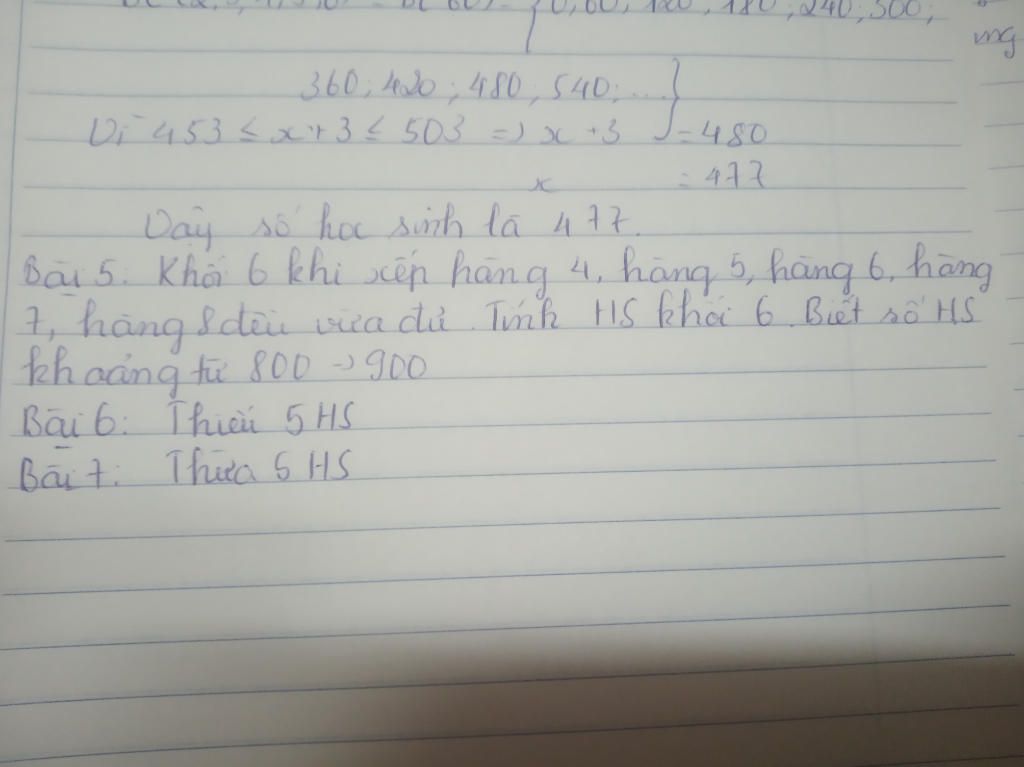 0, 60, 120, 180; 240; 300;
mg
360; 420; 480; 540; ...}
Vì 453 ≤ x+3 ≤ 503 => x+3 = 480
x = 477
Vậy số học sinh là 477.
Bài 5: Khối 6 khi xếp hàng 4, hàng 5, hàng 6, hàng
7, hàng 8 đều vừa đủ. Tính HS khối 6. Biết số HS
khoảng từ 800 -> 900
Bài 6: Thiếu 5 HS
Bài 7: Thừa 5 HS